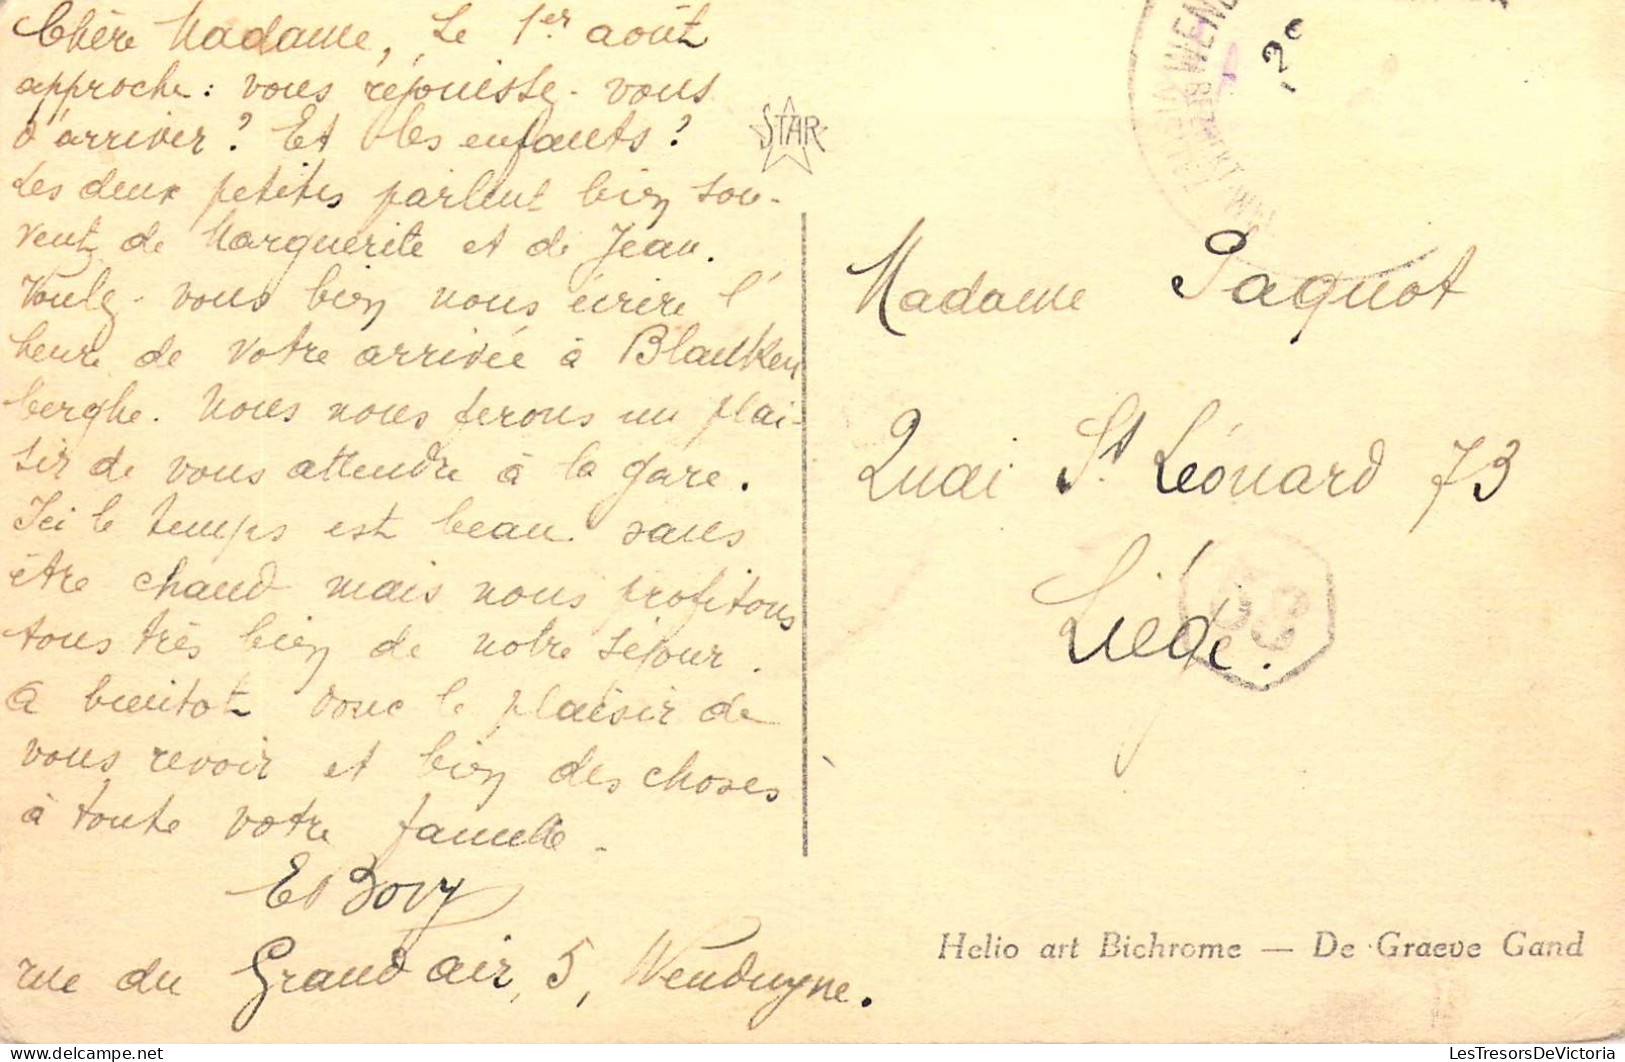 Chère Madame, Le 1er août
approche : vous réjouisse-vous
d'arriver ? Et les enfants ?
Les deux petites parlent bien sou-
vent de Marguerite et de Jean.
Voulez-vous bien nous écrire l'
heure de votre arrivée à Blanken
berghe. Nous nous ferons un plai-
sir de vous attendre à la gare.
Ici le temps est beau sans
être chaud mais nous profitons
tous très bien de notre séjour.
A bientot donc le plaisir de
vous revoir et bien des choses
à toute votre famille.
Et Bovy
rue du Grand air, 5, Wenduyne.
STAR
Madame Paquot
Quai St. Léonard 73
Liége.
53
Helio art Bichrome — De Graeve Gand
LesTresorsDeVictoria